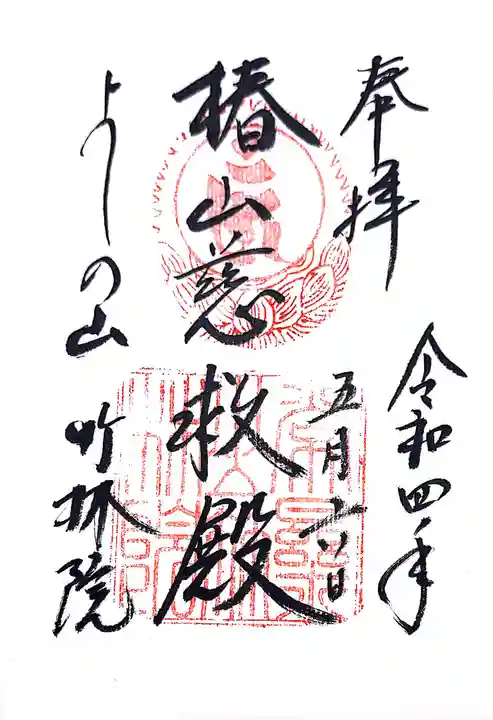 奉拝
令和四年
五月十八日
椿山慈救殿
よしの山
竹林院